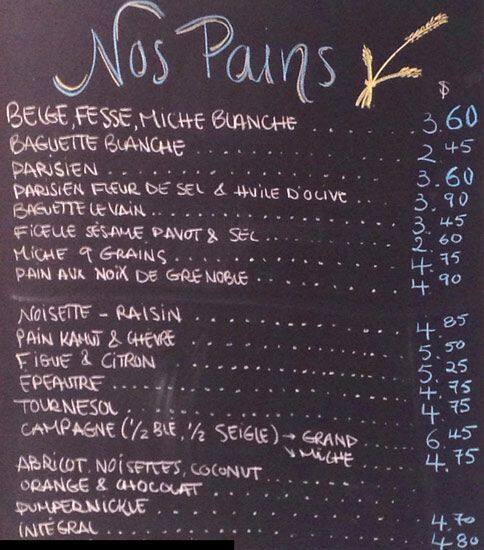 Nos Pains
$
BELGE, FESSE, MICHE BLANCHE ........ 3.60
BAGUETTE BLANCHE ........ 2.45
PARISIEN ........ 3.60
PARISIEN FLEUR DE SEL & HUILE D'OLIVE ... 3.90
BAGUETTE LEVAIN ........ 3.45
FICELLE SÉSAME PAVOT & SEL ........ 2.60
MICHE 9 GRAINS ........ 4.75
PAIN AUX NOIX DE GRENOBLE ........ 4.90
NOISETTE - RAISIN ........ 4.85
PAIN KAMUT & CHÈVRE ........ 5.50
FIGUE & CITRON ........ 5.25
EPEAUTRE ........ 4.75
TOURNESOL ........ 4.75
CAMPAGNE (1/2 BLE, 1/2 SEIGLE) → GRAND ... 6.45
↘ MICHE ... 4.75
ABRICOT, NOISETTES, COCONUT ........
ORANGE & CHOCOLAT ........
PUMPERNICKLE ........ 4.70
INTÉGRAL ........ 4.80